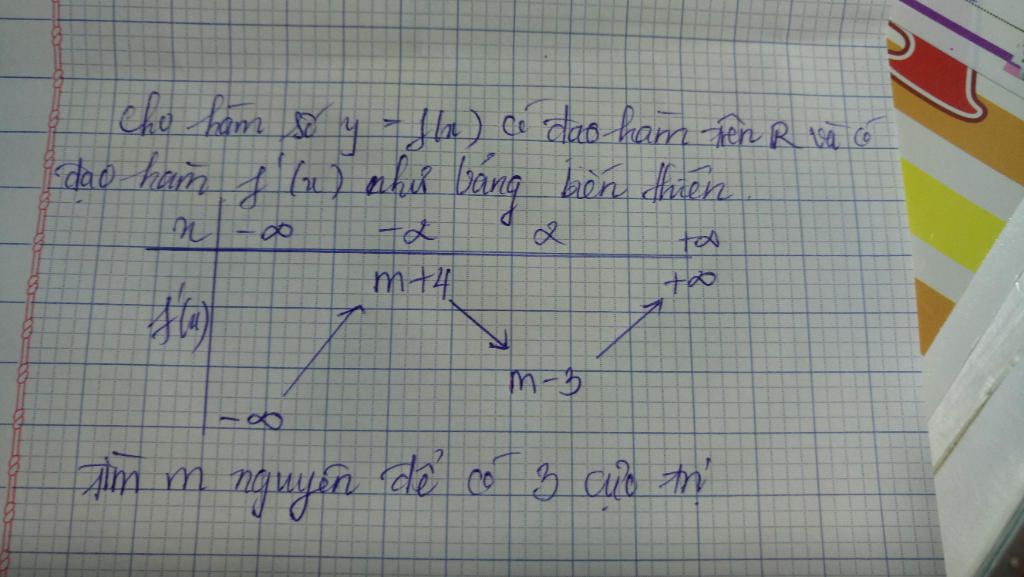 Cho hàm số y = f(x) có đạo hàm trên R và có
đạo hàm f'(x) như bảng biến thiên.
x -∞ -2 2 +∞
m+4 +∞
f'(x)
m-3
-∞
Tìm m nguyên để có 3 cực trị